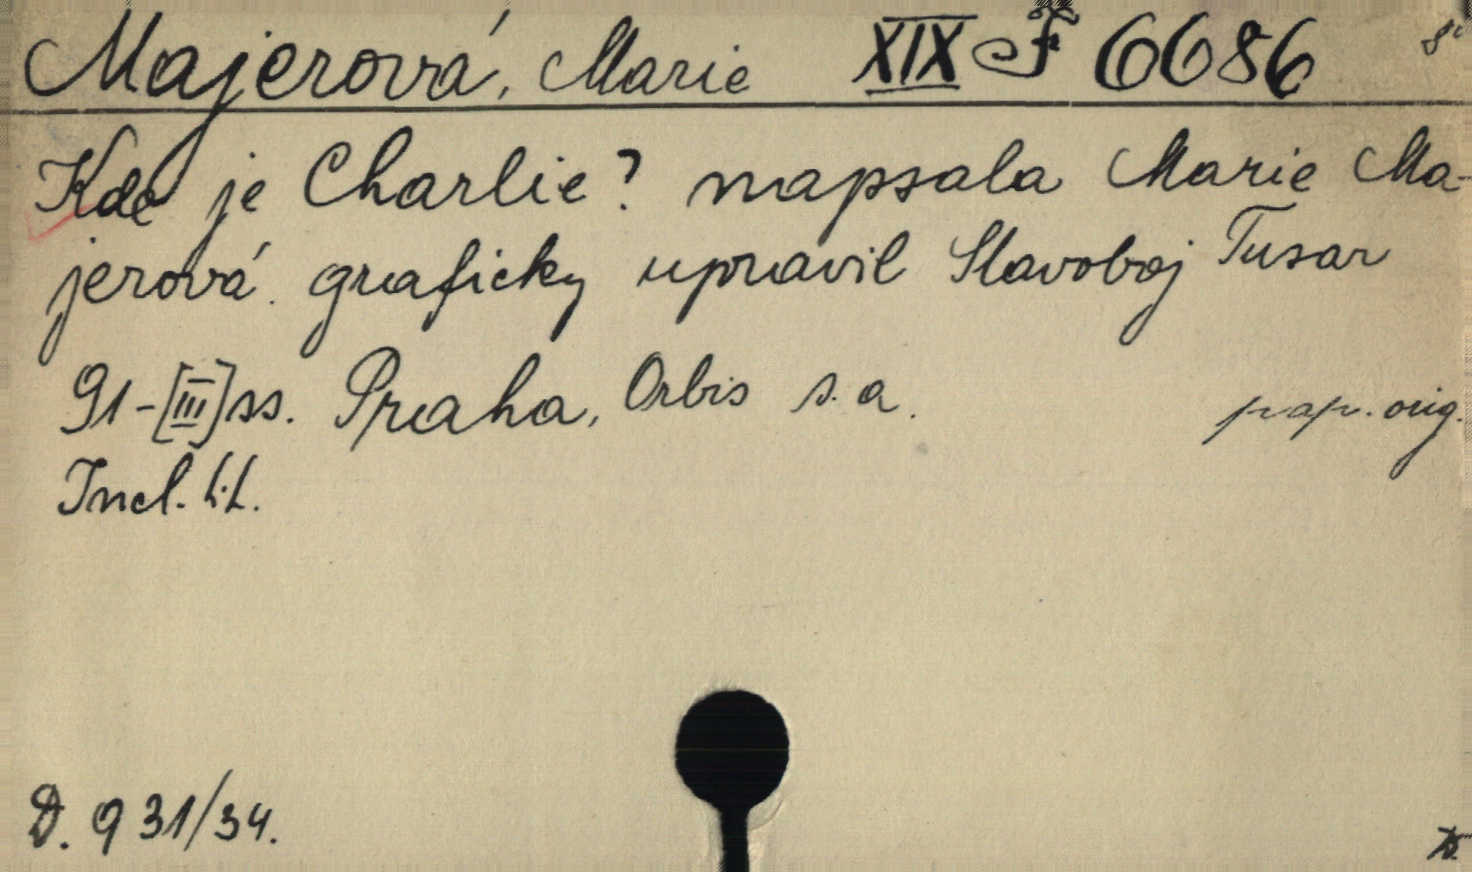 Majerová, Marie XIX F 6686 8°
Kde je Charlie? napsala Marie Ma-
jerová. graficky upravil Slavoboj Tusar
91-[III] ss. Praha, Orbis s. a. pap. orig.
Incl. t.t.
D. 931/34.